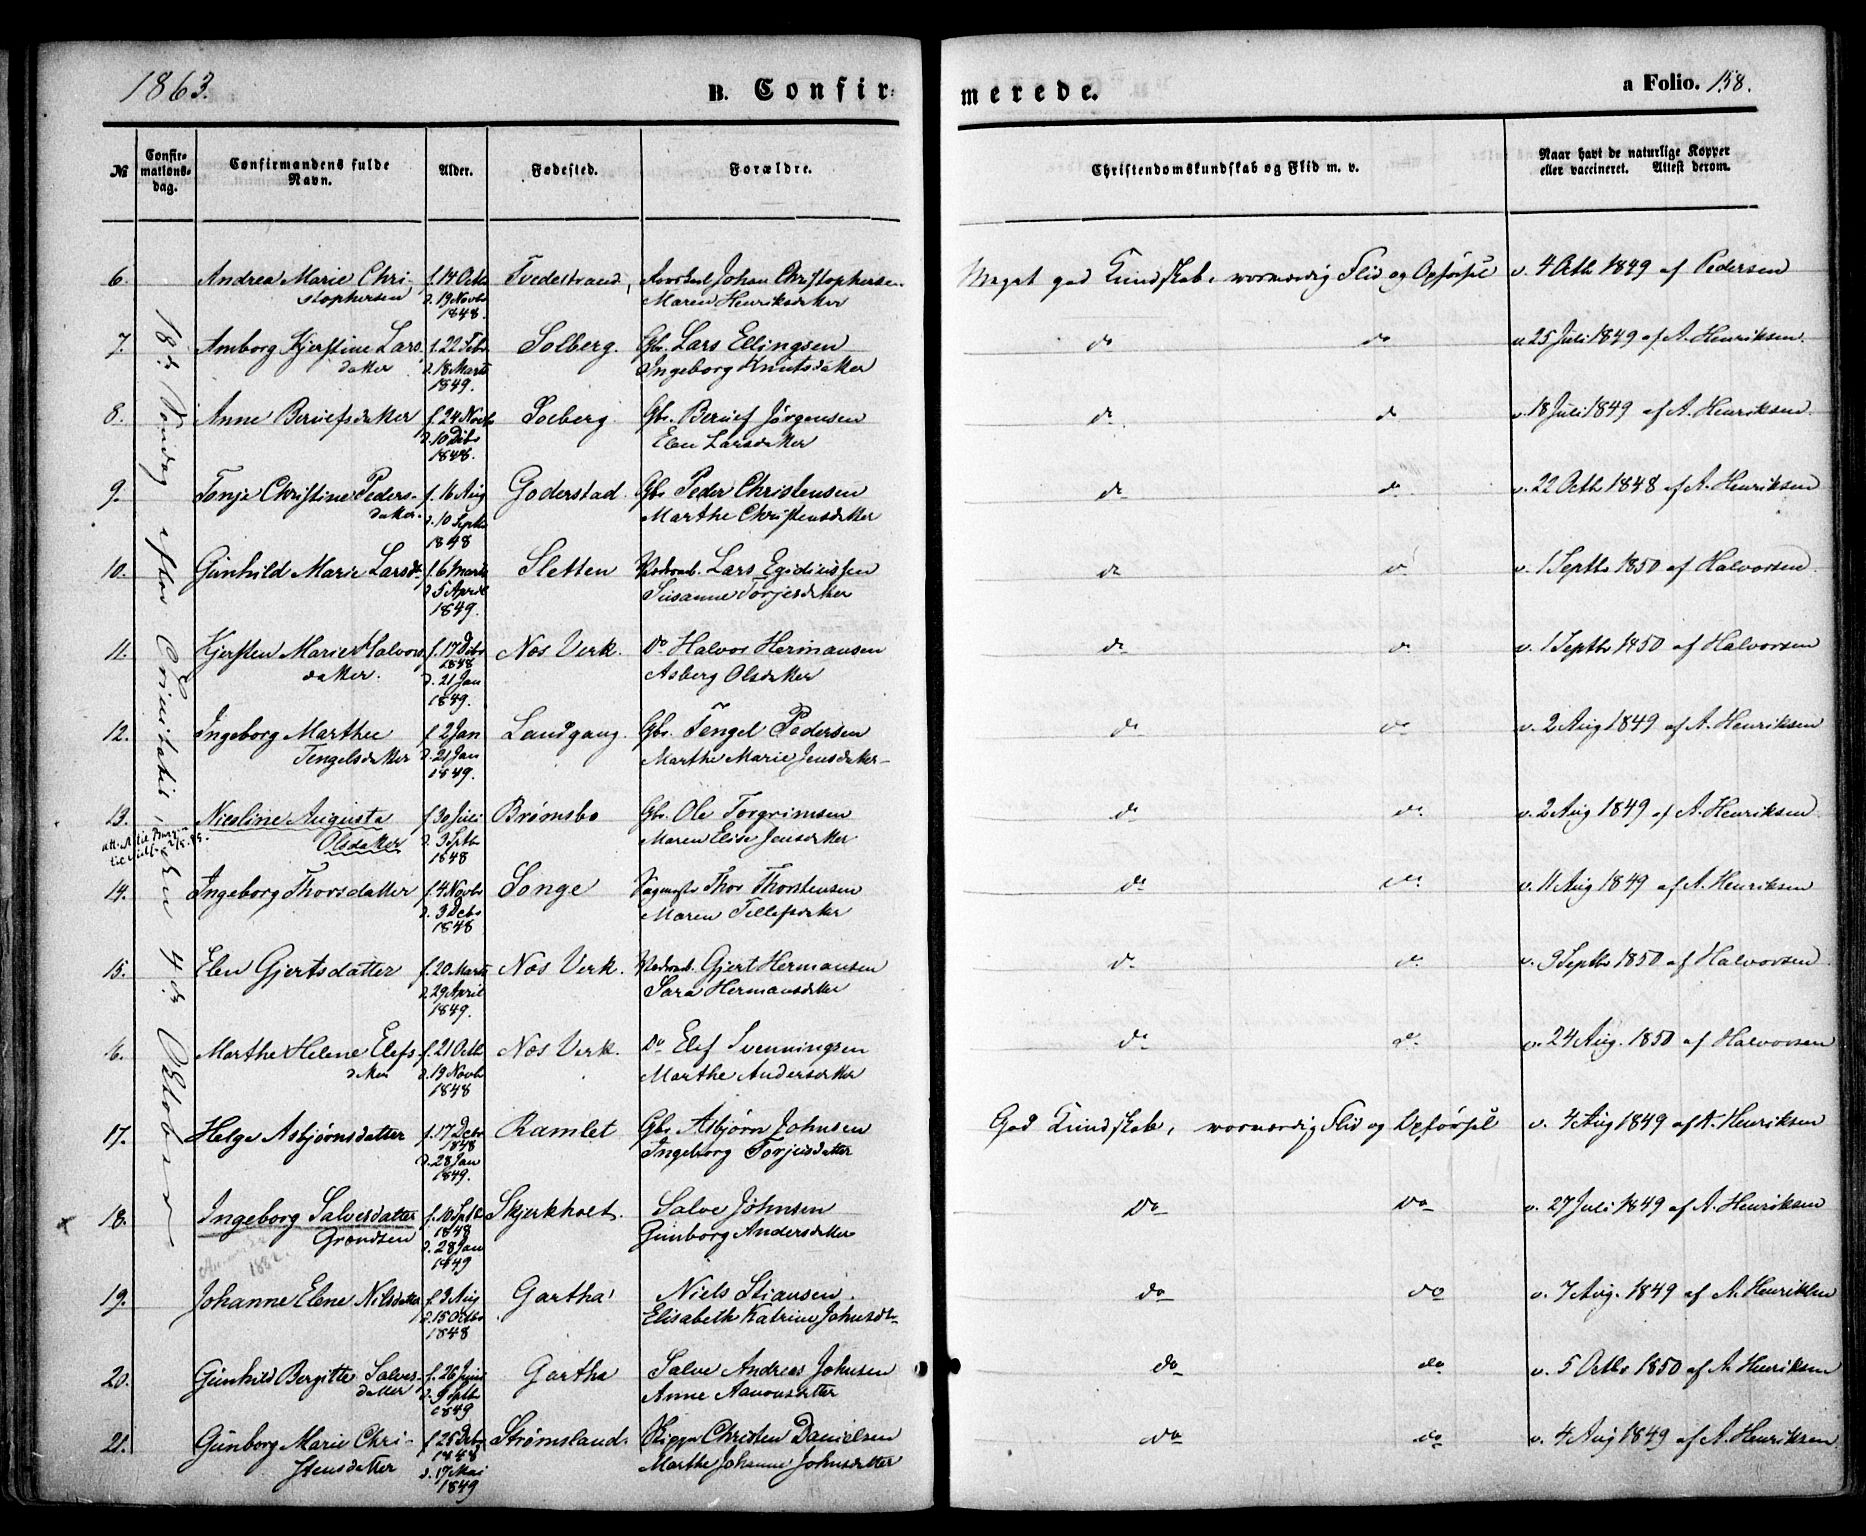 1863.
B. Confir-
merede.
a Folio. 158.
№
Confir-
mations-
dag.
Confirmandens fulde
Navn.
Alder.
Fødested.
Forældre.
Christendomskundskab og Flid m. v.
Naar havt de naturlige Kopper
eller vaccineret. Attest derom.
18de Søndag efter Trinitatis, den 4de October
6. Andrea Marie Chri- f. 14 Octb Tvedestrand, Johan Christophersen Meget god Kundskab, worværdig Flid og Opførsel v. 4 Octb 1849 af Pedersen
stophersen d. 19 Novbr Maren Henriksdatter
1848.
7. Amborg Kjerstine Lars f. 22 Febr Solberg. Gbr. Lars Ellingsen do do v. 25 Juli 1849 af A. Henriksen
datter d. 18 Marts Ingeborg Knutsdatter
1849.
8. Anne Berulfsdatter f. 24 Novb Solberg Gbr. Berulf Jørgensen do do v. 18 Juli 1849 af A. Henriksen
d. 10 Dcbr Elen Larsdatter
1848.
9. Tonje Christine Peders- f. 16 Aug Goderstad. Gbr Peder Christensen do do v. 22 Octb 1848 af A. Henriksen
datter. d. 10 Septb Marthe Christensdatter
1848
10. Gunhild Marie Larsdt. f. 6 Marts Sletten Lars Egidiussen do do v. 1 Septbr 1850 af Halvorsen
d. 5 April Susanne Torjesdatter
1849.
11. Kjersten Marie Halvors f. 17 Dcbr Næs Verk. Do Halvor Hermansen do do v. 1 Septbr 1850 af Halvorsen
datter. 1848 Asberg Olsdatter
d. 21 Jan
1849.
12. Ingeborg Marthe f. 2 Jan Landgang. Gbr. Tengel Pedersen do do v. 2 Aug 1849 af A. Henriksen
Tengelsdatter d. 21 Jan Marthe Marie Jensdatter
1849.
13. Nicoline Augusta f. 30 Juli Brømsbo Gbr. Ole Torgrimsen do do v. 2 Aug 1849 af A. Henriksen
Olsdatter d. 3 Septb Maren Elise Jensdatter
1848
14. Ingeborg Thorsdatter f. 4 Novbr Songe Thor Thorstensen do do v. 11 Aug 1849 af A. Henriksen
d. 3 Dcbr Maren Tellefsdatter
1848
15. Elen Gjertsdatter f. 20 Marts Næs Verk. Gjert Hermansen do do v. 3 Septbr 1850 af Halvorsen
d. 29 April Sara Hermansdatter
1849.
16. Marthe Helene Elefs f. 21 Octb Næs Verk. Do Elef Svenningsen do do v. 24 Aug. 1850 af Halvorsen
datter d. 19 Novb Marthe Andersdatter
1848
17. Helge Asbjørnsdatter f. 17 Dcbr Ramlet Gbr. Asbjørn Johnsen God Kundskab, worværdig Flid og Opførsel v. 4 Aug 1849 af A. Henriksen
1848 Ingeborg Torjusdatter
d. 28 Jan
1849.
18. Ingeborg Salvesdatter f. 10 Septb Skjerkholt. Salve Johnsen Do Do v. 27 Juli 1849 af A. Henriksen
Grændsen 1848 Gunborg Andersdatter
d. 28 Jan
1849
1882.
19. Johanne Elene Nilsdatter f. 3 Aug Gartha Niels Stiansen. do do v. 7 Aug. 1849 af A. Henriksen
d. 15 Octbr Elisabeth Katrine Johnsdt.
1848
20. Gunhild Bergitte Salves- f. 26 Juni Gartha Salve Andreas Johnsen do do v. 5 Octbr 1850 af A. Henriksen
datter d. 9 Septbr Anne Aanonsdatter
1849
21. Gunborg Marie Chri- f. 25 Dcbr Strømsland. Christen Danielsen do do v. 4 Aug 1849 af A. Henriksen
stensdatter 1848 Marthe Johanne Johnsdatter
d. 17 Mai
1849